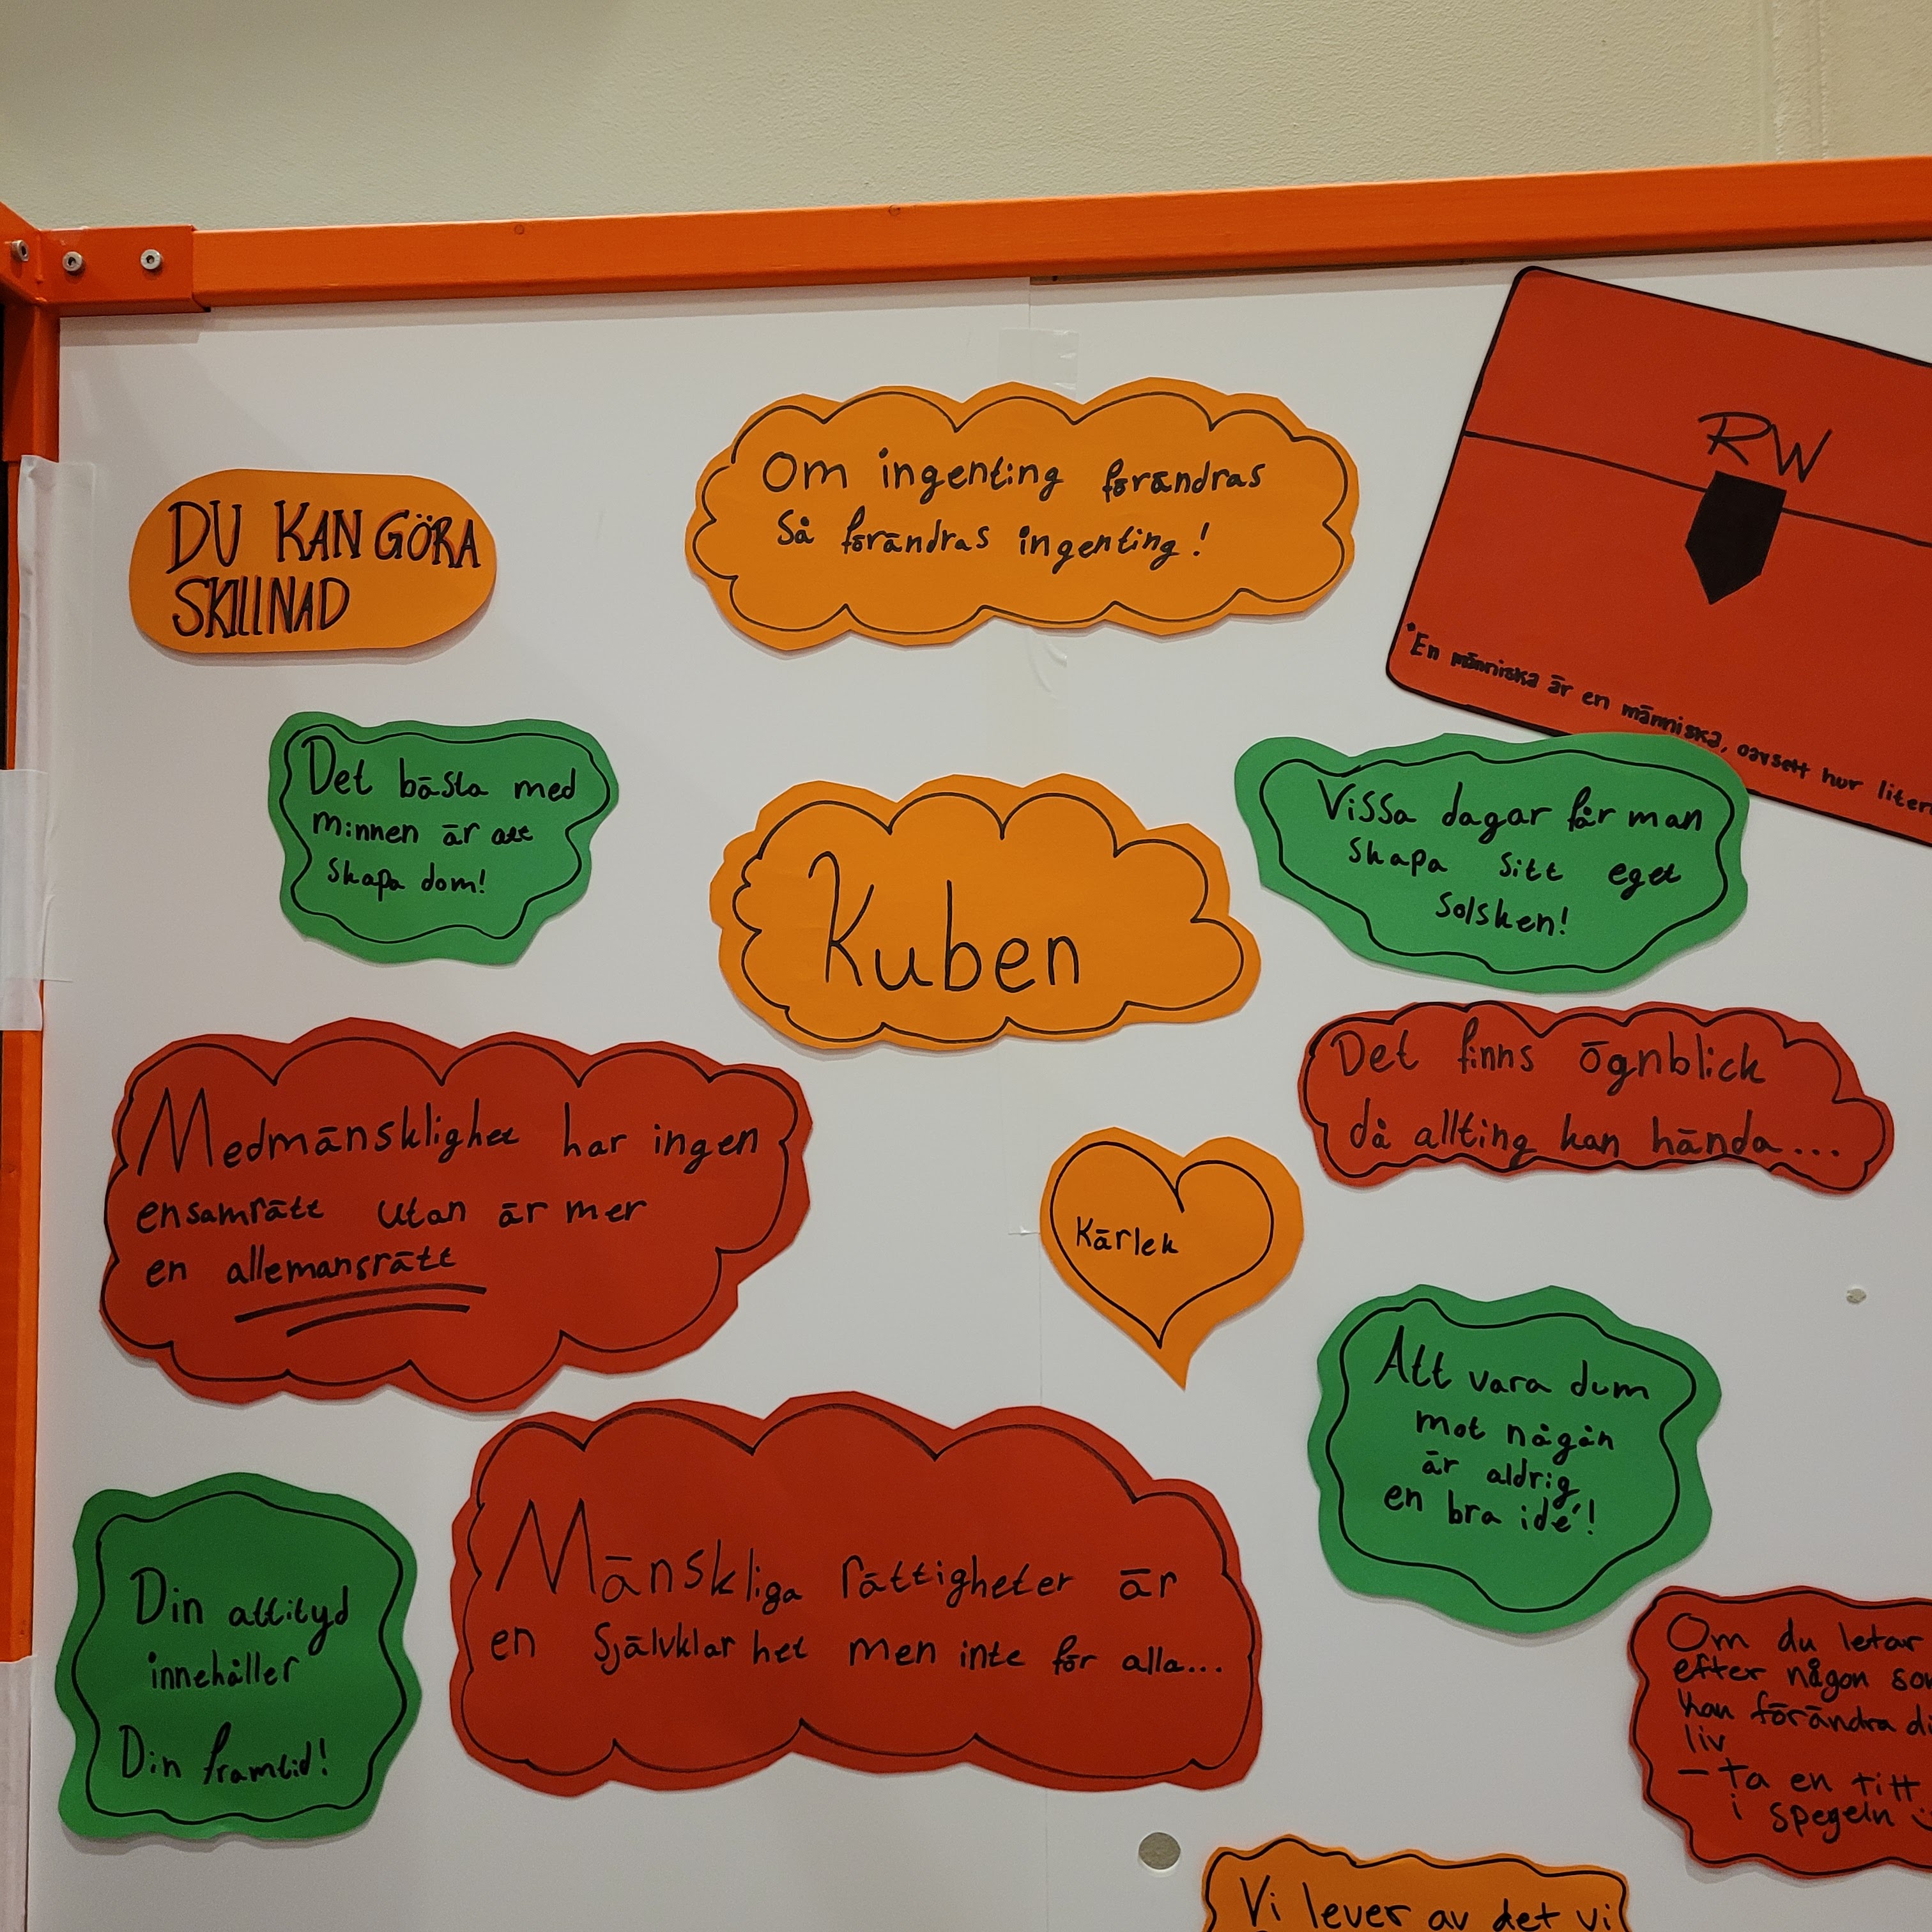 DU KAN GÖRA
SKILLNAD
Om ingenting förändras
Så förändras ingenting!
RW
"En människa är en människa, oavsett hur liten
Det bästa med
minnen är att
skapa dom!
Kuben
Vissa dagar får man
skapa sitt eget
solsken!
Det finns ögnblick
då allting kan hända...
Medmänsklighet har ingen
ensamrätt utan är mer
en allemansrätt
Kärlek
Att vara dum
mot någån
är aldrig
en bra idé!
Mänskliga rättigheter är
en självklarhet men inte för alla...
Din attityd
innehåller
Din framtid!
Om du letar
efter någon som
kan förändra
liv
- Ta en titt
i spegeln
Vi lever av det vi